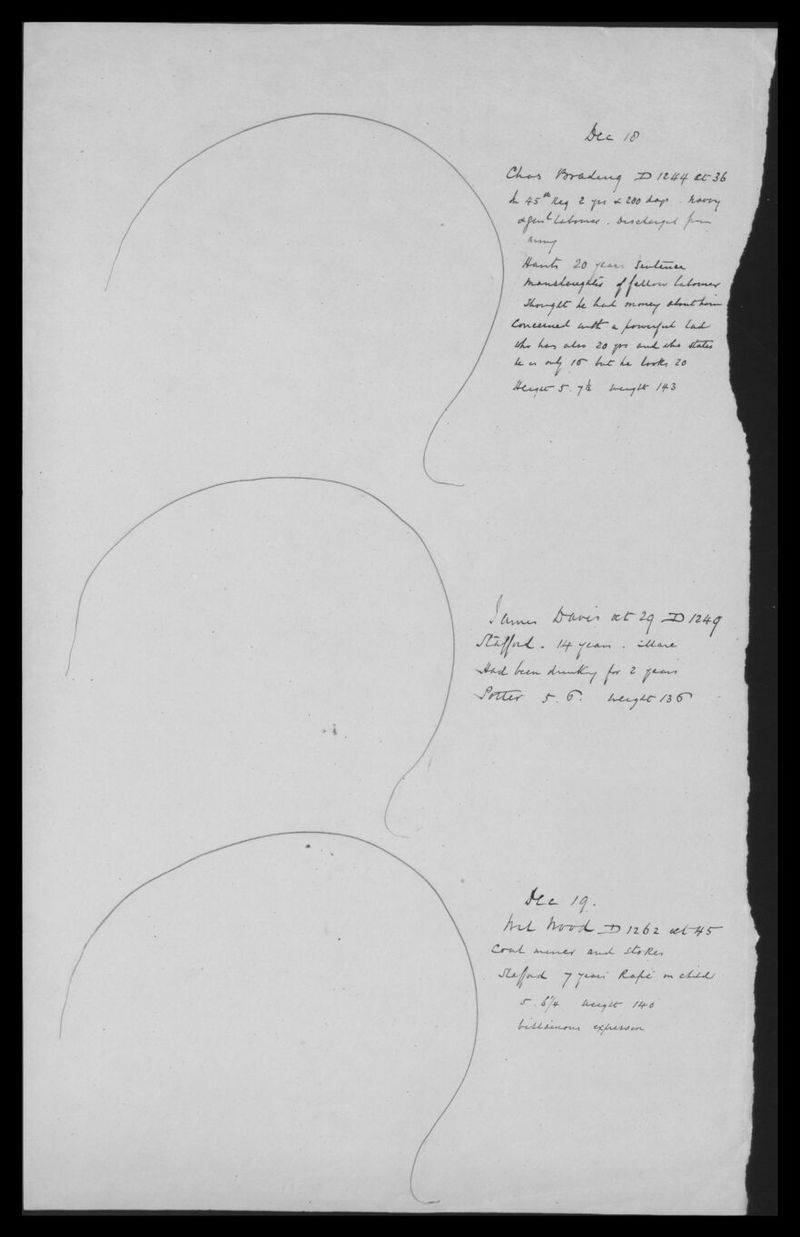 Dec 18
Chas Brading D 1244 æt 36
In 45th Reg 2 yrs & 200 days. Navvy
& genl labourer. Discharged from
Army
Hants 20 years Sentence
Manslaughter of fellow labourer
thought he had money about him
Concerned with a powerful lad
who has also 20 yrs and who states
he is only 16 but he looks 20
Height 5. 7½ weight 143
James Davis æt 29 D 1249
Stafford. 14 years.
Had been drinking for 2 years
Potter 5. 6. weight 136
Dec 19.
Wm Wood D 1262 æt 45
Coal miner and Stoker
Stafford 7 years Rape on child
5. 6¼ weight 146
villainous expression